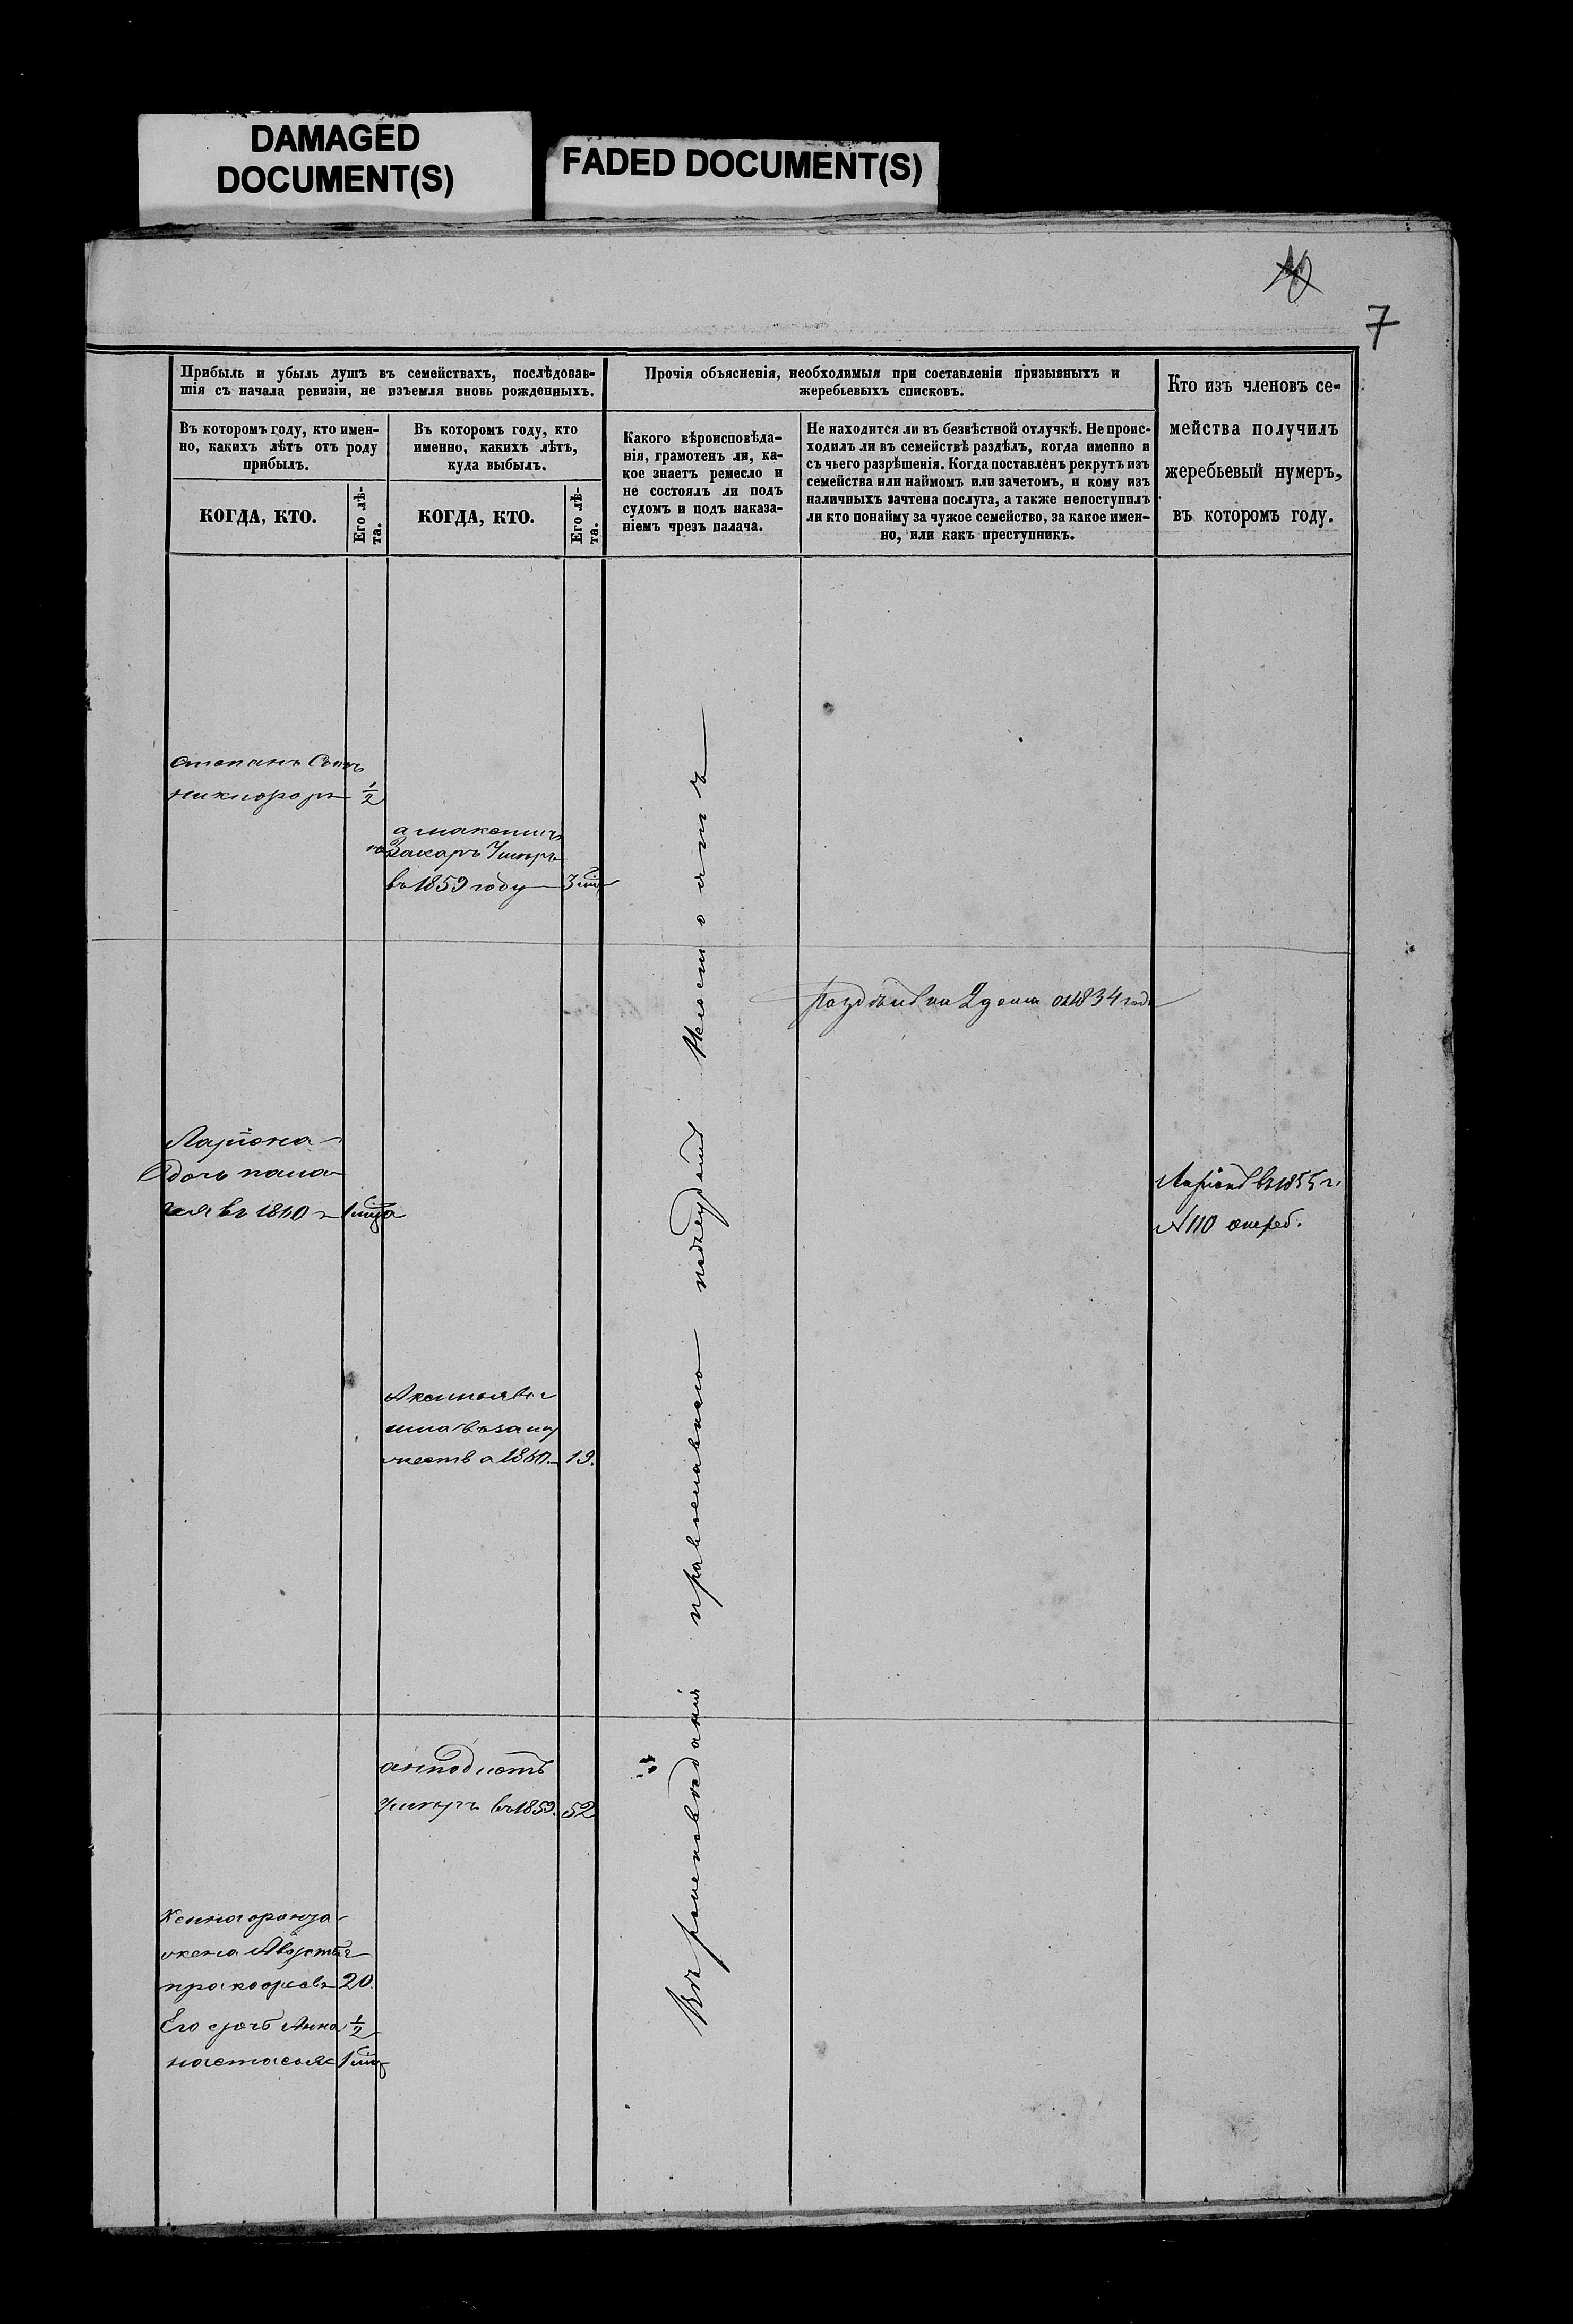 DAMAGED
DOCUMENT(S)
FADED DOCUMENT(S)
10
7
Прибыль и убыль душъ въ семействахъ, послѣдовав-
шія съ начала ревизіи, не изъемля вновь рожденныхъ.
Въ которомъ году, кто имен-
но, какихъ лѣтъ отъ роду
прибылъ.
КОГДА, КТО.
Его лѣ-
та.
Въ которомъ году, кто
именно, какихъ лѣтъ,
куда выбылъ.
КОГДА, КТО.
Его лѣ-
та.
Прочія объясненія, необходимыя при составленіи призывныхъ и
жеребьевыхъ списковъ.
Какого вѣроисповѣда-
нія, грамотенъ ли, ка-
кое знаетъ ремесло и
не состоялъ ли подъ
судомъ и подъ наказа-
ніемъ чрезъ палача.
Не находится ли въ безвѣстной отлучкѣ. Не проис-
ходилъ ли въ семействѣ раздѣлъ, когда именно и
съ чьего разрѣшенія. Когда поставленъ рекрутъ изъ
семейства или наймомъ или зачетомъ, и кому изъ
наличныхъ зачтена послуга, а также непоступилъ
ли кто понайму за чужое семейство, за какое имен-
но, или какъ преступникъ.
Кто изъ членовъ се-
мейства получилъ
жеребьевый нумеръ,
въ которомъ году.
Степанъ Сынъ
никифоръ 1/2
Захаръ Умеръ
въ 1859 году 3
раздѣлъ на 2 дома 1834 года
Ларіона
дочь пала-
гея въ 1860 1
Ларіонъ въ 1855 г.
N 110 жереб.
Аксинья вы
шла въ заму
жество 1860 19.
анподистъ
умеръ въ 1859. 52
жена
20.
Его дочь Анна 1/2
настасья 1
Вѣроисповѣданія православнаго подсудомъ несостоятъ